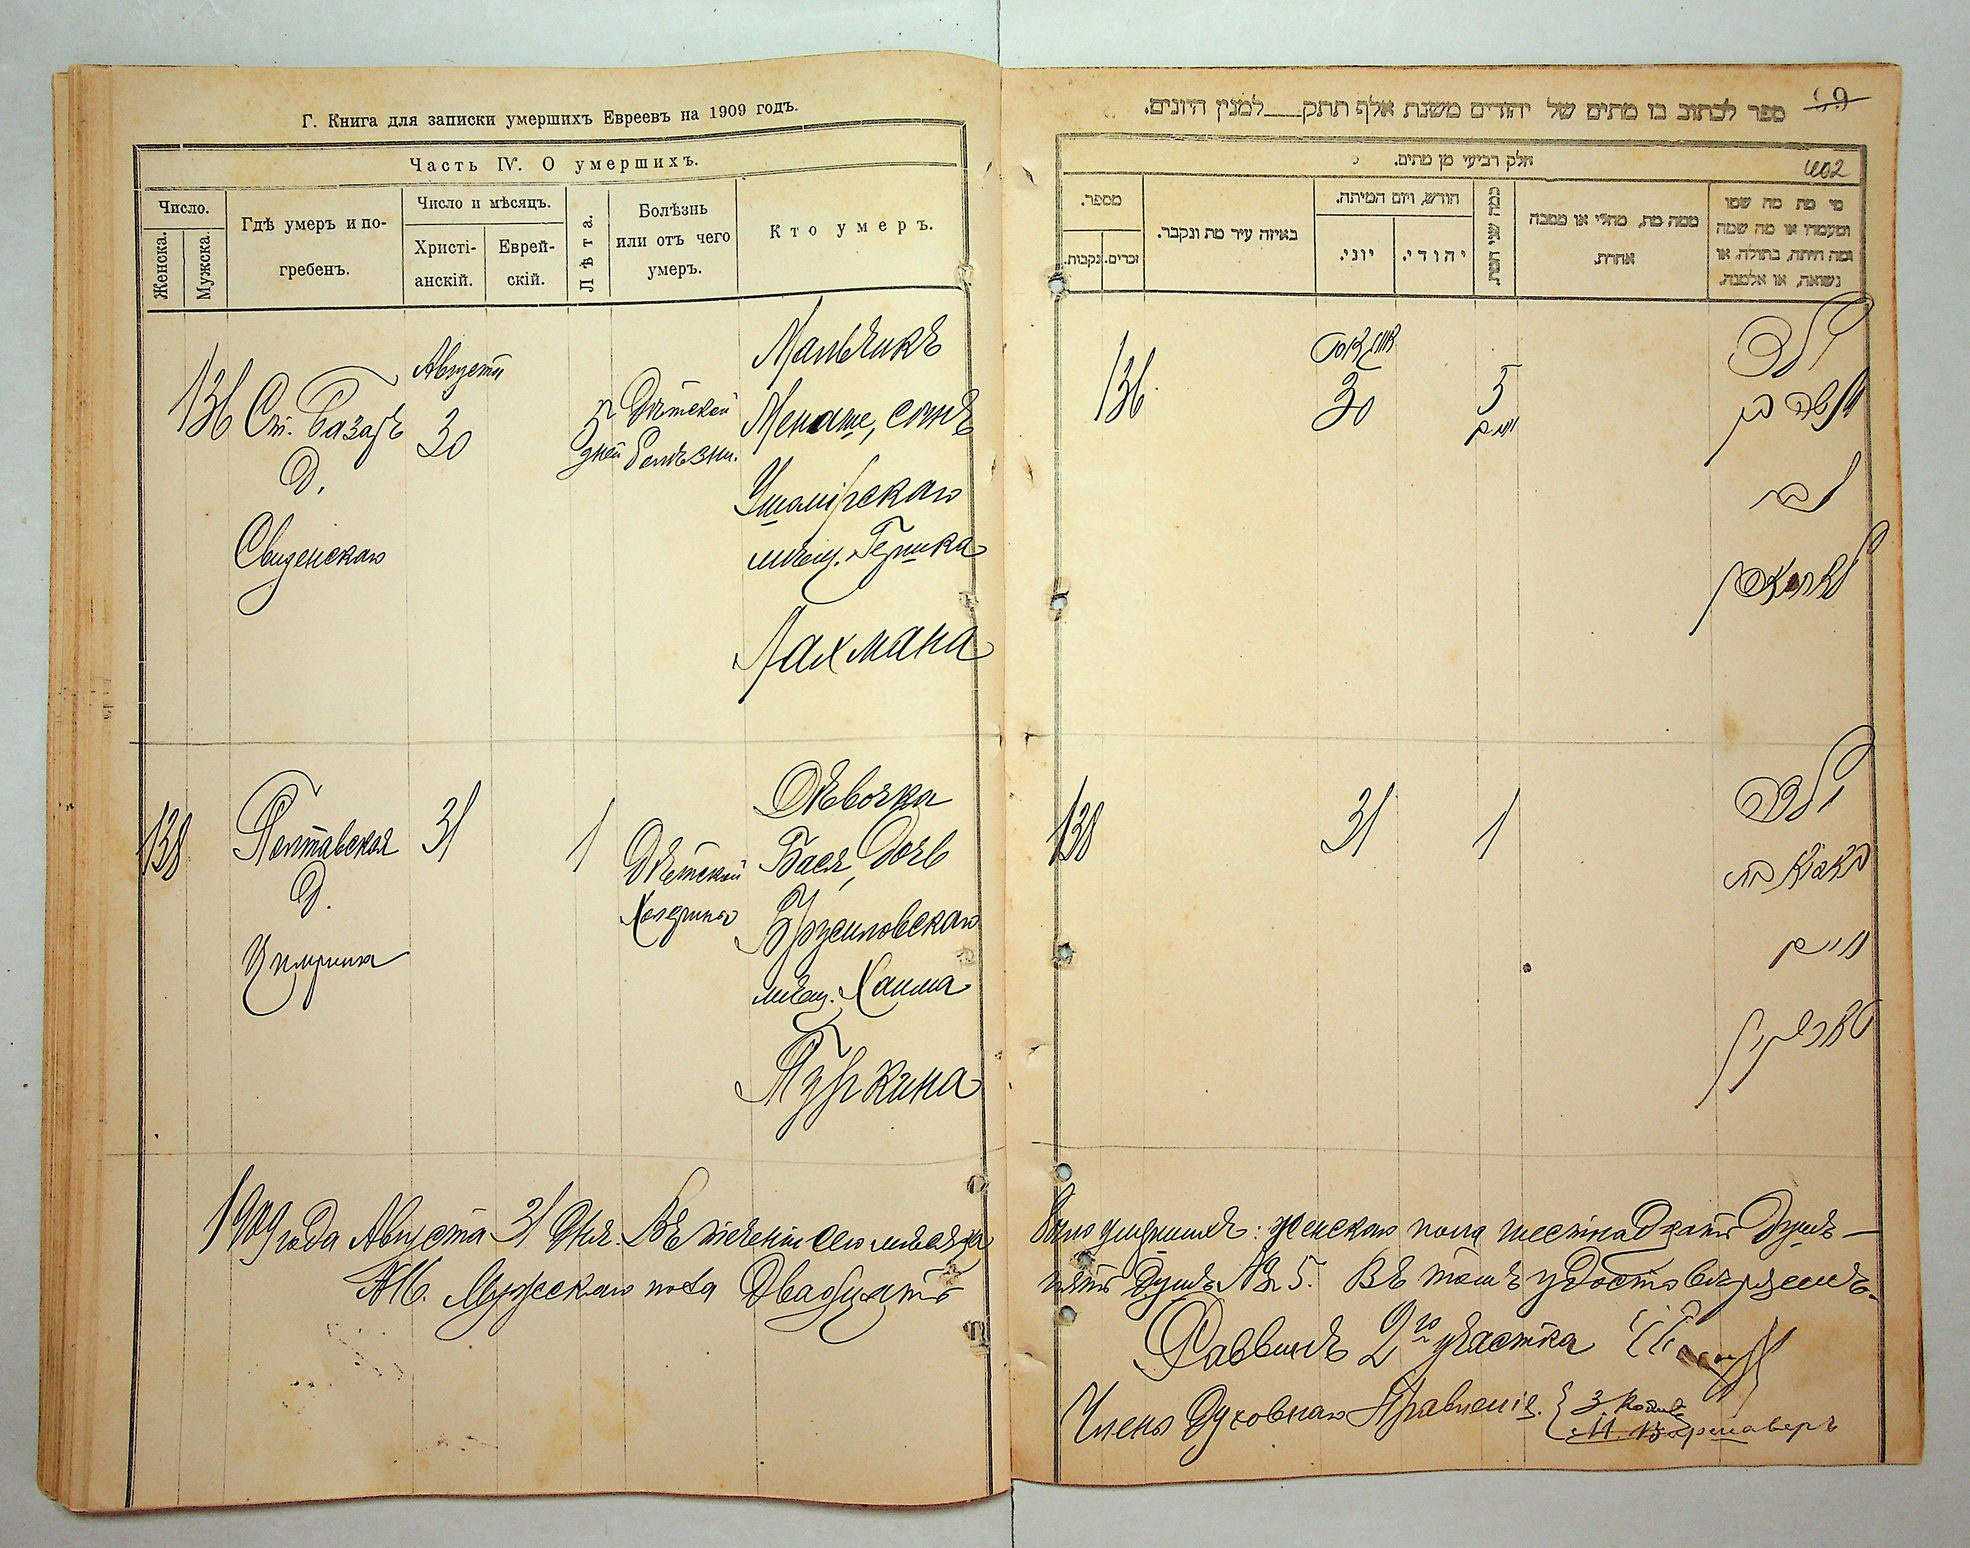 Г. Книга для записки умершихъ Евреевъ на 1909 годъ.
Часть IV. О умершихъ.
Число.
Женска.
Мужска.
Гдѣ умеръ и по-
гребенъ.
Число и мѣсяцъ.
Христі-
анскій.
Еврей-
скій.
Лѣта.
Болѣзнь
или отъ чего
умеръ.
Кто умеръ.
136
Ст. Базаръ
Д.
Августа
30
5
дней
Дѣтской
болѣзни.
Мальчикъ
Менаше, сынъ
мѣщ. Гершка
Лахмана
138
Полтавская
Д.
31
1
Дѣтской
Дѣвочка
Бася, дочь
Брусиловскаго
мѣщ. Хаима
Туркина
1909 года Августа 31 дня. Въ теченіи сего мѣсяца
Мужскаго пола двадцать
ספר לכתוב בו מתים של יהודים משנת אלף תתק__למנין היונים.
402
חלק רביעי מן מתים.
מספר.
נקבות.
זכרים.
באיזה עיר מת ונקבר.
חודש, ויום המיתה.
יוני.
יהודי.
כמה שני המת.
ממה מת, מחלי או מסבה
אחרת.
מי מת מה שמו
ומעמדו או מה שמה
ומה היתה, בתולה, או
נשואה, או אלמנה.
136
אויגוסט
30
5
ימים
ילד
מנשה בן
לאכמאן
138
31
1
ילדה
באסיא בת
חיים
טורקין
было умершихъ: женскаго пола шестнадцать душъ —
пять душъ № 5. Въ томъ удостовѣряемъ.
Раввинъ 2го участка
Члены Духовнаго Правленія.
М. Варшаверъ